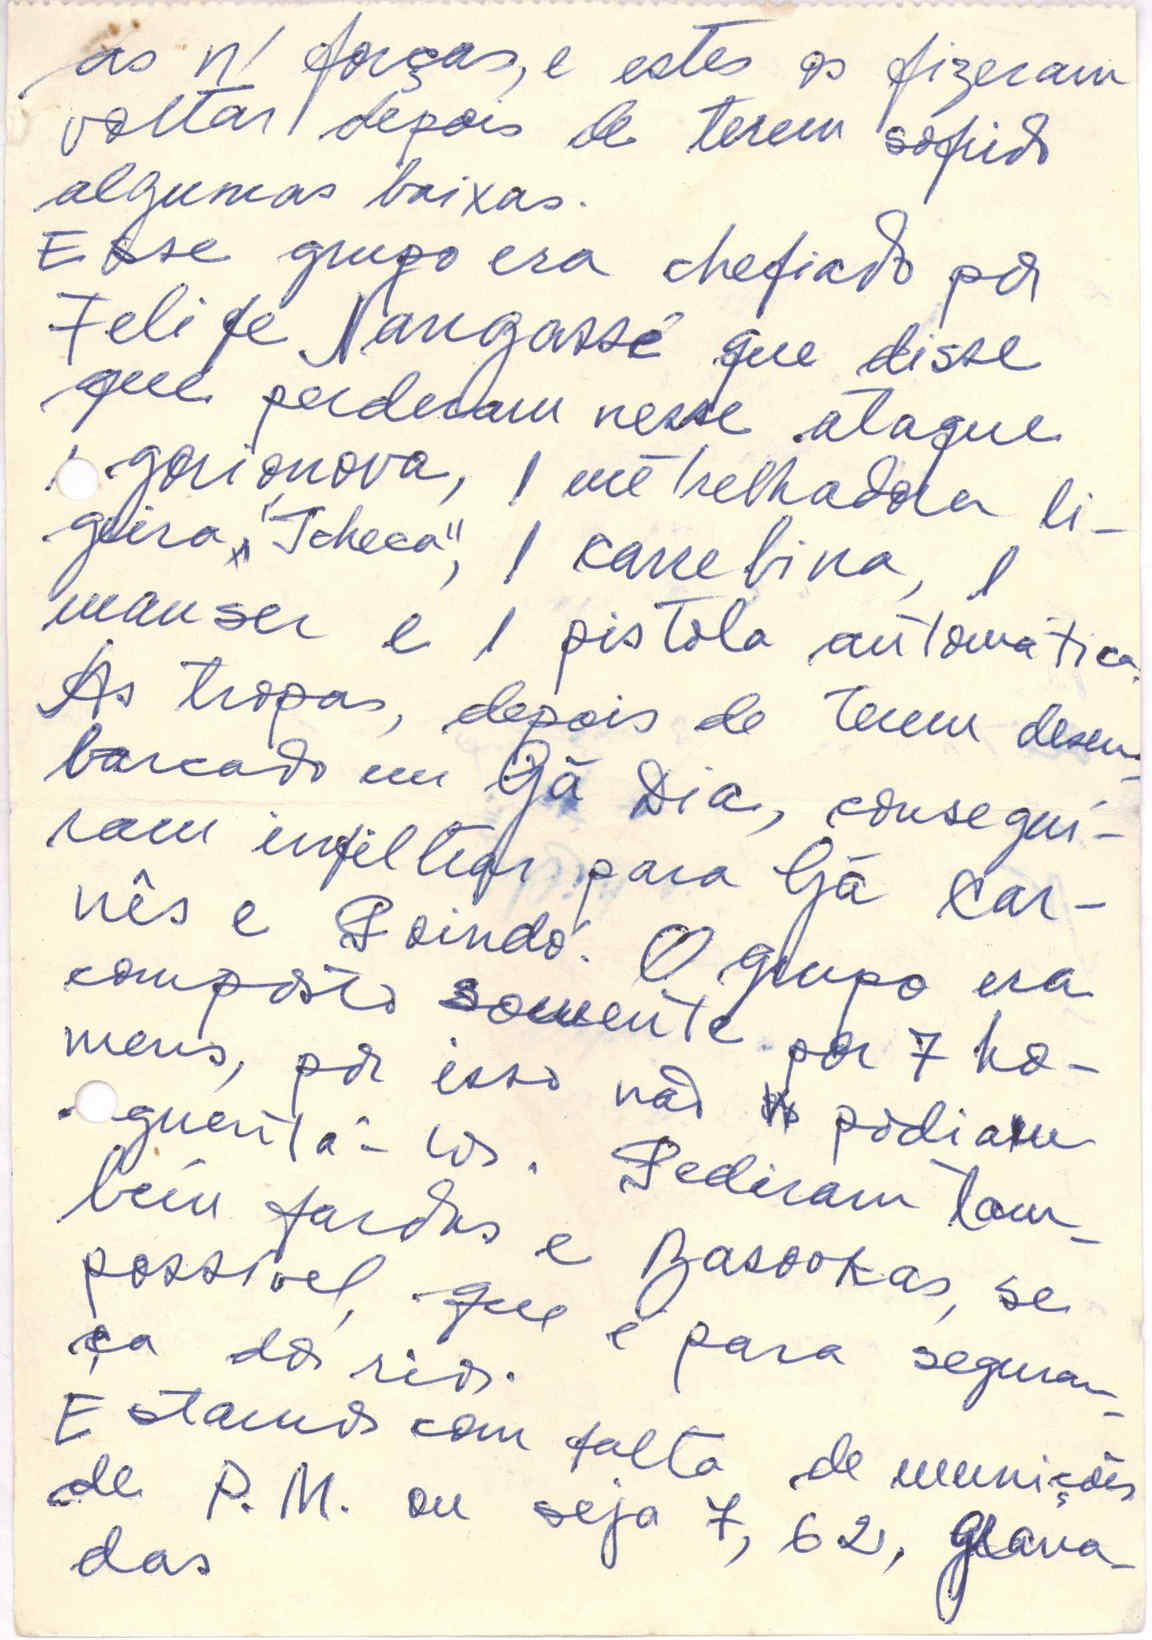 as n/ forças, e estes os fizeram
voltar depois de terem sofrido
algumas baixas.
Esse grupo era chefiado por
Felife Nangassé que disse
que perderam nesse ataque
1 gorionova, 1 metrelhadora li-
geira, "Tcheca", 1 carrebina, 1
mauser e 1 pistola automática.
As tropas, depois de terem desem-
barcado em Gã Dia, consegui-
ram infiltrar para Gã Car-
nês e Poindó. O grupo era
composto somente por 7 ho-
mens, por isso não podiam
aguentá-los. Pediram tam-
bém fardas e Basookas, se
possível, que é para seguran-
ça dos rios.
Estamos com falta de munições
de P.M. ou seja 7,62, Grana-
das